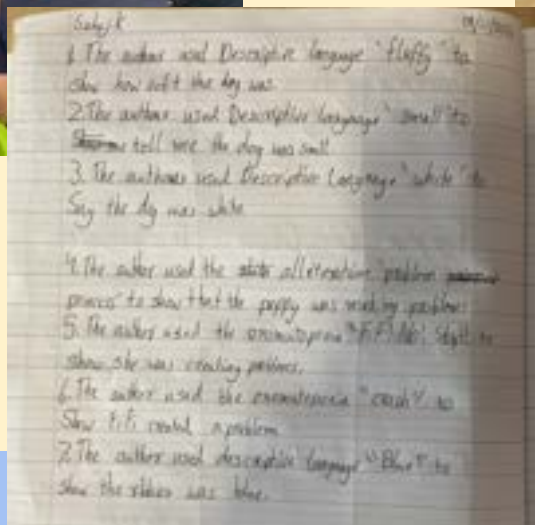 1. The author used Descriptive language "fluffy" to
show how soft the dog was
2. The author used Descriptive language "small" to
tell me the dog was small
3. The author used Descriptive Language "white" to
Say the dog was white
4. The author used the alliteration "problem
princess" to show that the puppy was making problems
5. The author used the onomatopoeia "FiFi No! to
show she was creating problems.
6. The author used the onomatopoeia "crash" to
Show fifi created a problem
7. The author used descriptive language "Blue" to
show the ribbon was blue.